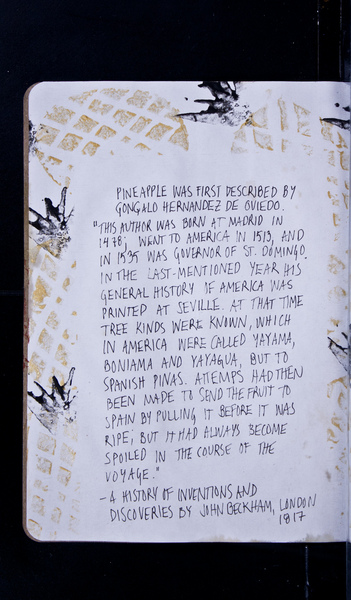 PINEAPPLE WAS FIRST DESCRIBED BY
GONGALO HERNANDEZ DE OVIEDO.
"THIS AUTHOR WAS BORN AT MADRID IN
1478; WENT TO AMERICA IN 1513, AND
IN 1535 WAS GOVERNOR OF ST. DOMINGO.
IN THE LAST-MENTIONED YEAR HIS
GENERAL HISTORY OF AMERICA WAS
PRINTED AT SEVILLE. AT THAT TIME
TREE KINDS WERE KNOWN, WHICH
IN AMERICA WERE CALLED YAYAMA,
BONIAMA AND YAYAGUA, BUT TO
SPANISH PINAS. ATTEMPS HAD THEN
BEEN MADE TO SEND THE FRUIT TO
SPAIN BY PULLING IT BEFORE IT WAS
RIPE; BUT IT HAD ALWAYS BECOME
SPOILED IN THE COURSE OF THE
VOYAGE."
- A HISTORY OF INVENTIONS AND
DISCOVERIES BY JOHN BECKHAM, LONDON
1817